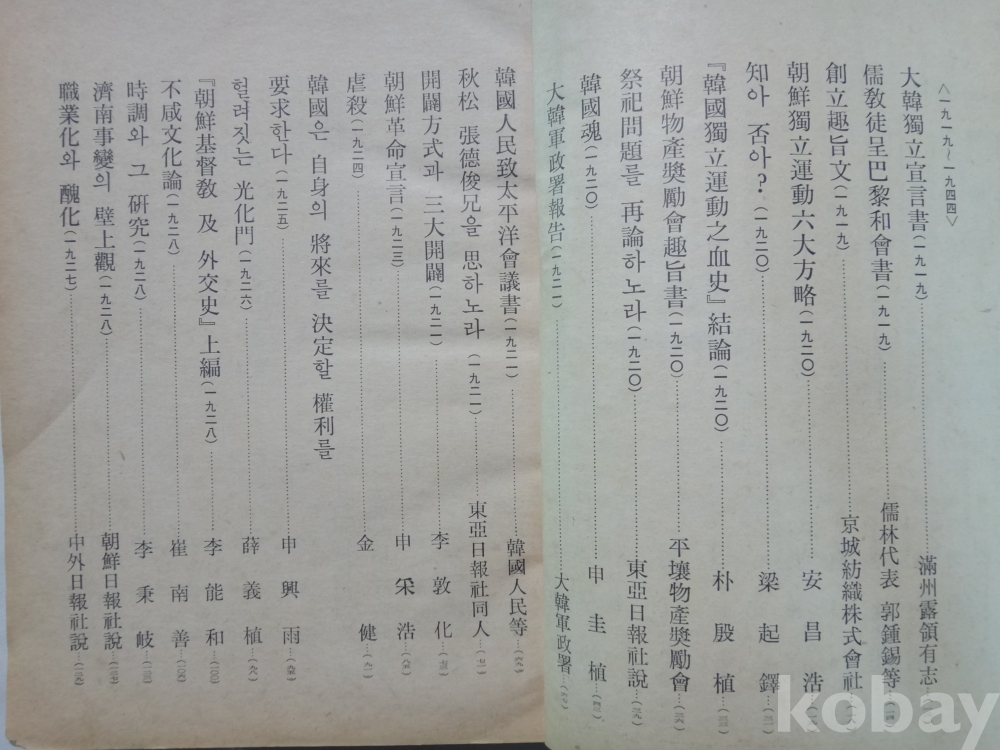 〈一九一九～一九四四〉
大韓獨立宣言書(一九一九)……滿州露領有志
儒敎徒呈巴黎和會書(一九一九)……儒林代表 郭鍾錫等
創立趣旨文(一九一九)……京城紡織株式會社
朝鮮獨立運動六大方略(一九二〇)……安昌浩
知아 否아?(一九二〇)……梁起鐸
『韓國獨立運動之血史』結論(一九二〇)……朴殷植
朝鮮物產奬勵會趣旨書(一九二〇)……平壤物產奬勵會
祭祀問題를 再論하노라(一九二〇)……東亞日報社說
韓國魂(一九二〇)……申圭植
大韓軍政署報告(一九二一)……大韓軍政署
韓國人民致太平洋會議書(一九二一)……韓國人民等
秋松 張德俊兄을 思하노라(一九二一)……東亞日報社同人
開闢方式과 三大開闢(一九二一)……李敦化
朝鮮革命宣言(一九二三)……申采浩
虐殺(一九二四)……金健
韓國은 自身의 將來를 決定할 權利를
要求한다(一九二五)……申興雨
헐려짓는 光化門(一九二六)……薛義植
『朝鮮基督敎 及 外交史』上編(一九二八)……李能和
不咸文化論(一九二八)……崔南善
時調와 그 硏究(一九二八)……李秉岐
濟南事變의 壁上觀(一九二八)……朝鮮日報社說
職業化와 醜化(一九二七)……中外日報社說
kobay